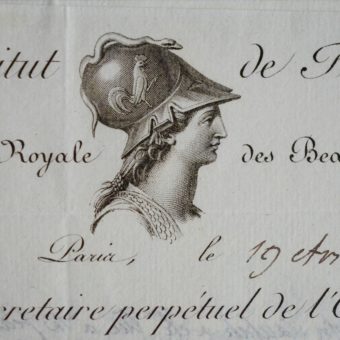 titut de F
Royale des Bea
Paris, le 19
cretaire perpétuel de l'